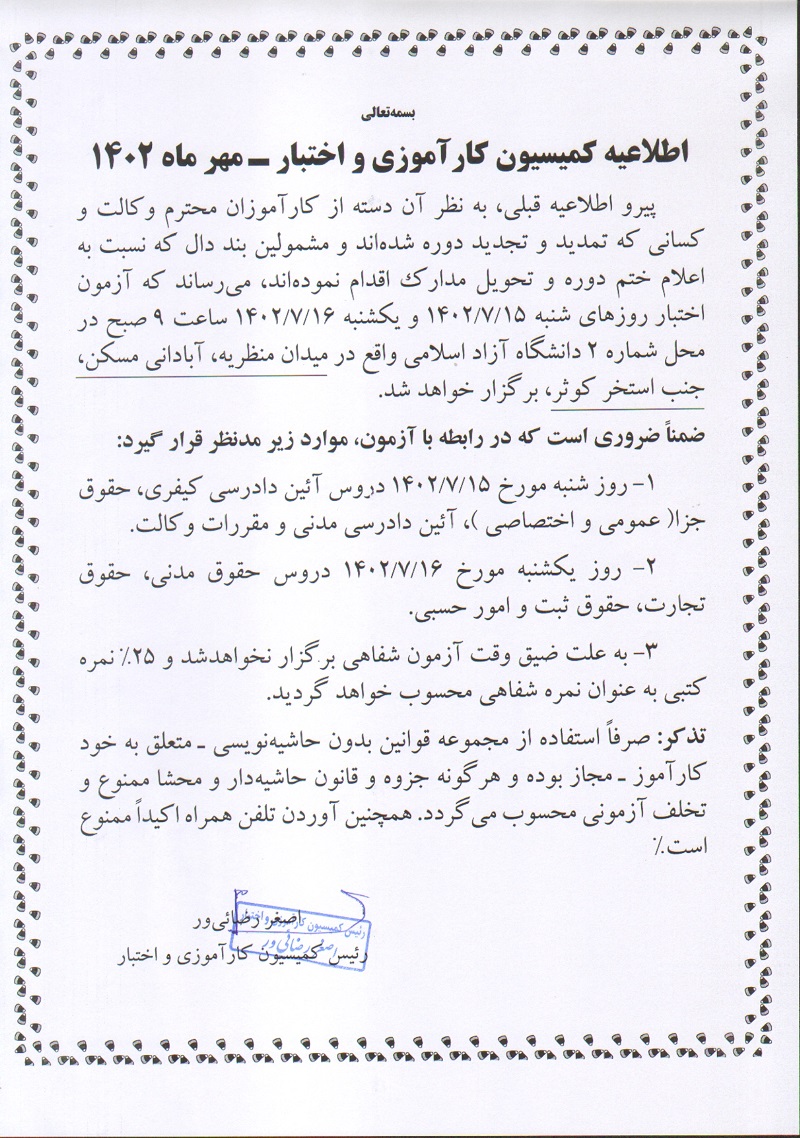 بسمه‌تعالی
اطلاعیه کمیسیون کارآموزی و اختبار ــ مهر ماه ۱۴۰۲
پیرو اطلاعیه قبلی، به نظر آن دسته از کارآموزان محترم وکالت و
کسانی که تمدید و تجدید دوره شده‌اند و مشمولین بند دال که نسبت به
اعلام ختم دوره و تحویل مدارك اقدام نموده‌اند، می‌رساند که آزمون
اختبار روزهای شنبه ۱۴۰۲/۷/۱۵ و یکشنبه ۱۴۰۲/۷/۱۶ ساعت ۹ صبح در
محل شماره ۲ دانشگاه آزاد اسلامی واقع در میدان منظریه، آبادانی مسکن،
جنب استخر کوثر، برگزار خواهد شد.
ضمناً ضروری است که در رابطه با آزمون، موارد زیر مدنظر قرار گیرد:
۱- روز شنبه مورخ ۱۴۰۲/۷/۱۵ دروس آئین دادرسی کیفری، حقوق
جزا( عمومی و اختصاصی )، آئین دادرسی مدنی و مقررات وکالت.
۲- روز یکشنبه مورخ ۱۴۰۲/۷/۱۶ دروس حقوق مدنی، حقوق
تجارت، حقوق ثبت و امور حسبی.
۳- به علت ضیق وقت آزمون شفاهی برگزار نخواهدشد و ۲۵٪ نمره
کتبی به عنوان نمره شفاهی محسوب خواهد گردید.
تذکر: صرفاً استفاده از مجموعه قوانین بدون حاشیه‌نویسی ـ متعلق به خود
کارآموز ـ مجاز بوده و هرگونه جزوه و قانون حاشیه‌دار و محشا ممنوع و
تخلف آزمونی محسوب می‌گردد. همچنین آوردن تلفن همراه اکیداً ممنوع
است.٪
اصغر رضائی‌ور
رئیس کمیسیون کارآموزی و اختبار
رئیس کمیسیون کارآموزی و اختبار
اصغر رضائی ور